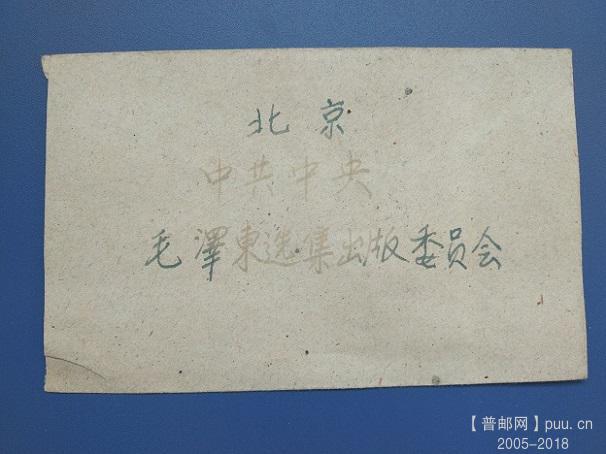 北京
中共中央
毛澤東选集出版委员会
【普邮网】puu.cn
2005-2018